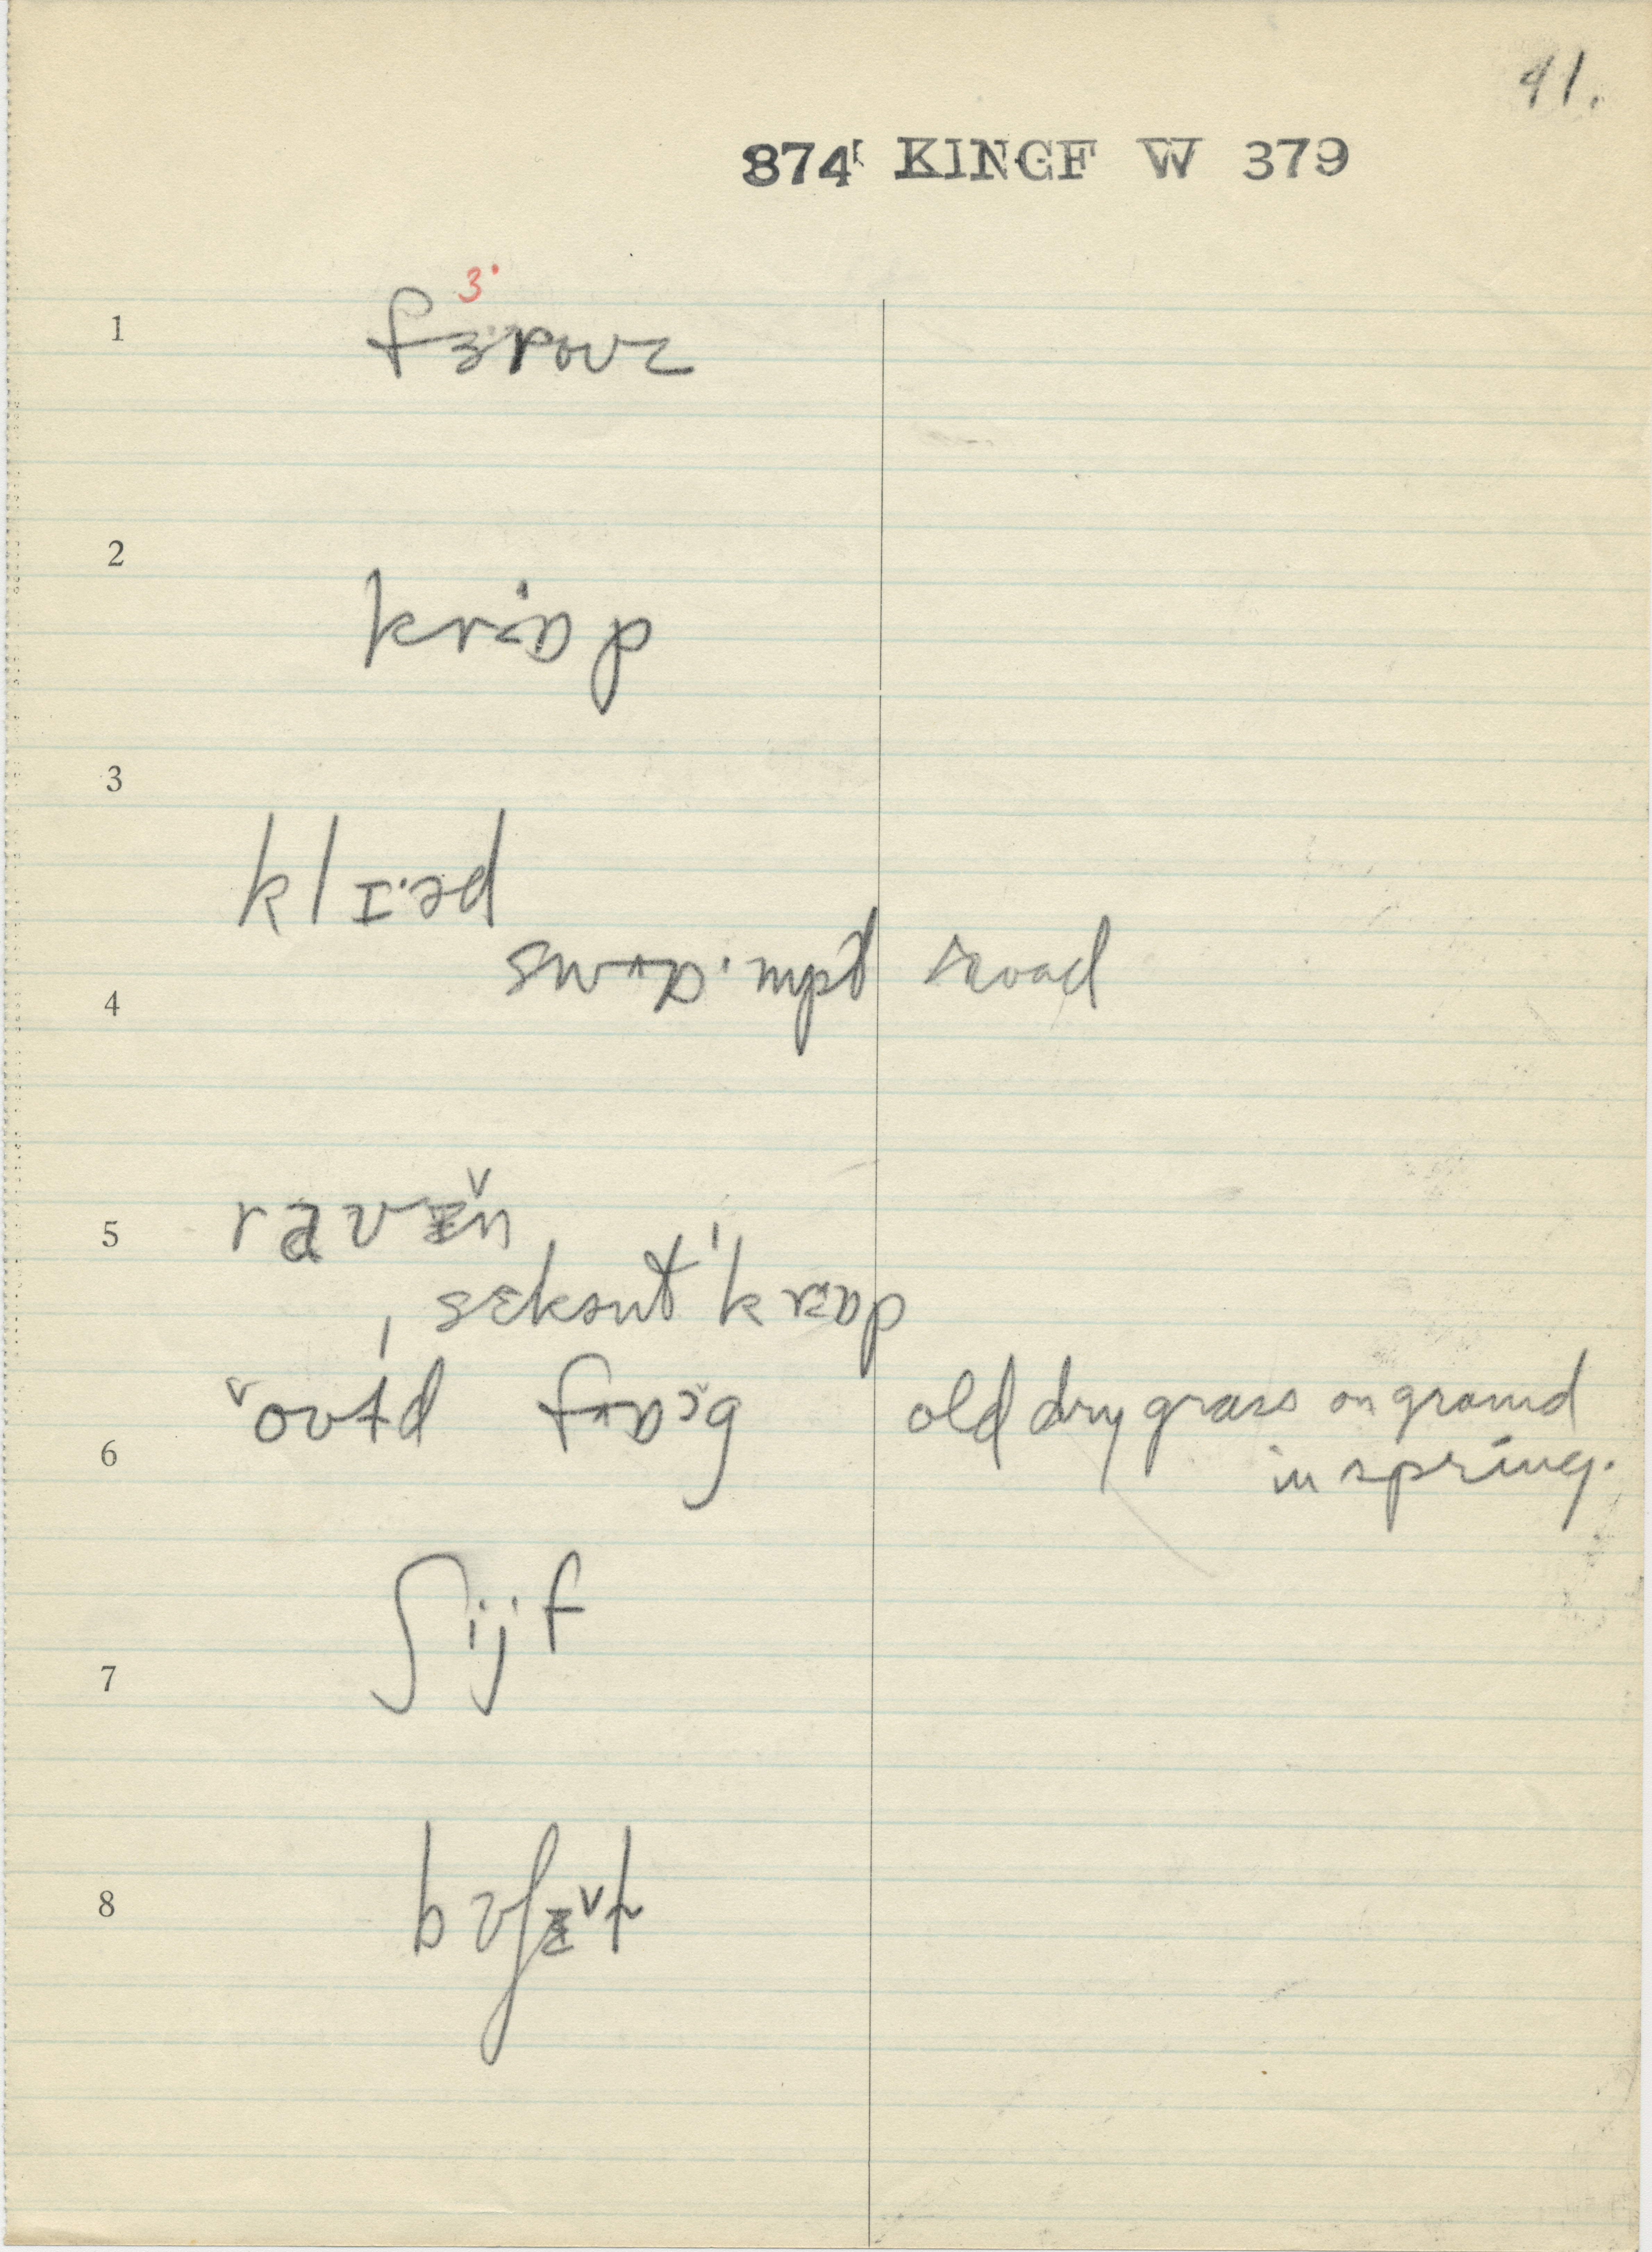 41.
874 KINGF W 379
3˙
1 fɜrouz
2 krɒp
3 klɪ·əd
4 swɒ·mpt road
5 ravɪ̌n
ˌsɛkənt ˈkrɒp
6 ˇoʊɫd fɒ̌g old dry grass on ground
in spring.
7 ʃijf
8 bʊʃɪ̌ɫ